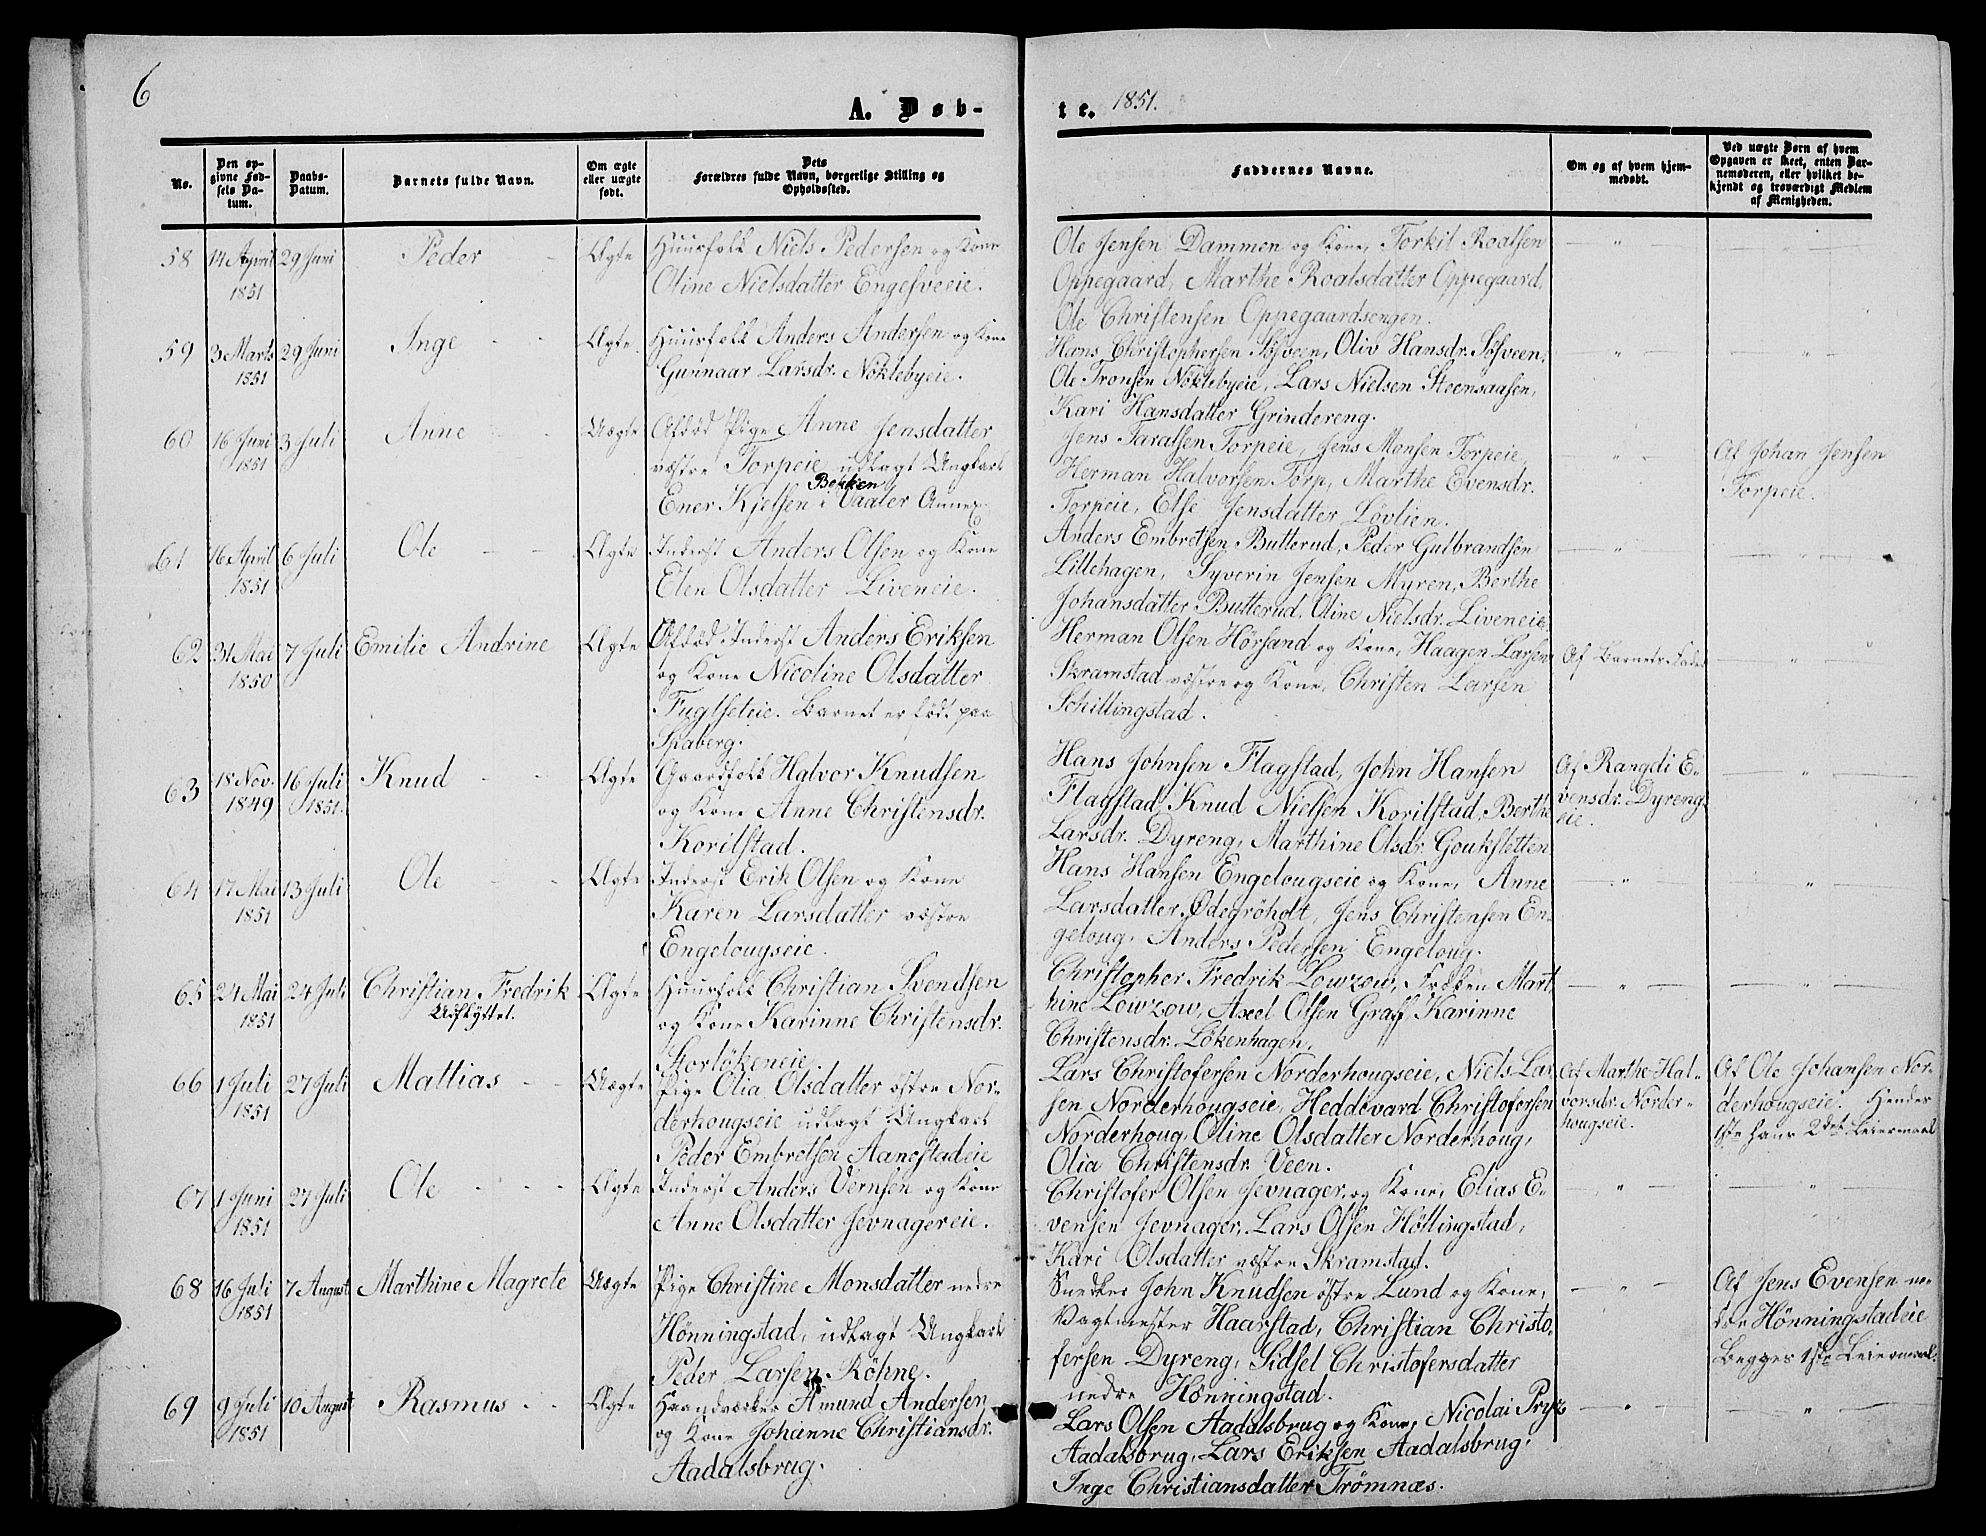 6
A. Døb-
te. 1851.
No.
Den op-
givne Fød-
sels Da-
tum.
Daabs-
Datum.
Barnets fulde Navn.
Om ægte
eller uægte
født.
Dets
Forældres fulde Navn, borgerlige Stilling og
Opholdssted.
Faddernes Navne.
Om og af hvem hjem-
medøbt.
Ved uægte Børn af hvem
Opgaven er skeet, enten Bar-
nemoderen, eller hvilket be-
kjendt og troværdigt Medlem
af Menigheden.
58
14 April
1851
29 Juni
Peder
Ægte
Huusfolk Niels Pedersen og Kone
Oline Nielsdatter Engesveeie.
Ole Jensen Dammen og Kone, Torkil Roalsen
Oppegaard, Marthe Roalsdatter Oppegaard,
Ole Christensen Oppegaardsengen.
59
3 Marts
1851
29 Juni
Inge
Ægte
Huusfolk Anders Andersen og Kone
Gunnaar Larsdr. Nöklebyeie.
Hans Christophersen Sösveen, Oliv Hansdr. Sösveen,
Ole Tronsen Nöklebyeie, Lars Nielsen Steensaasen,
Kari Hansdatter Grindereng.
60
16 Juni
1851
3 Juli
Anne
Uægte
Afsæd. Pige Anne Jensdatter
vestre Torpeie, udlagt Ungkarl
Ener Kjelsen Bekken i Vaaler Annex.
Jens Taralsen Torpeie, Jens Monsen Torpeie,
Herman Halvorsen Torp, Marthe Evensdr.
Torpeie, Else Jensdatter Lövlien.
Af Johan Jensen
Torpeie.
61
16 April
1851
6 Juli
Ole
Ægte
Inderst Anders Olsen og Kone
Elen Olsdatter Liveneie.
Anders Embretsen Butterud, Peder Gulbrandsen
Lillehagen, Syverin Jensen Myren, Berthe
Johansdatter Butterud. Oline Nielsdr. Liveneie.
62
31 Mai
1850
7 Juli
Emilie Andrine
Ægte
Inderst Anders Eriksen
og Kone Nicoline Olsdatter
Fuglseteie. Barnet er födt paa
Spaberg.
Herman Olsen Hörsand og Kone, Haagen Larsen
Skramstad vestre og Kone, Christen Larsen
Schillingstad.
Af Barnets Fader
63
18 Nov.
1849
16 Juli
1851.
Knud
Ægte
Gaardfolk Halvor Knudsen
og Kone Anne Christensdr.
Korilstad.
Hans Johnsen Flagstad, John Hansen
Flagstad, Knud Nielsen Korilstad, Berthe
Larsdr. Dyreng, Marthine Olsdr. Goukstetten
Af Rangdi E-
vensdr. Dyreng-
eie.
64
17 Mai
1851
13 Juli
Ole
Ægte
Inderst Erik Olsen og Kone
Karen Larsdatter vestre
Engelougseie.
Hans Hansen Engelougseie og Kone, Anne
Larsdatter Ödegröholt, Jens Christensen En-
geloug, Anders Pedersen Engeloug.
65
24 Mai
1851
24 Juli
Christian Fredrik
Udflyttet.
Ægte
Huusfolk Christian Svendsen
og Kone Karinne Christensdr.
Storlökeneie.
Christopher Fredrik Lowzow, Fröken Mart-
hine Lowzow, Axel Olsen Graff, Karinne
Christensdr. Lökenhagen.
66
1 Juli
1851
27 Juli
Mattias
Uægte
Pige Olia Olsdatter östre Nor-
derhougseie udlagt Ungkarl
Peder Embretsen Aanestadeie
Lars Christofersen Norderhougseie, Niels Lar-
sen Norderhougseie, Heddevard Christofersen
Norderhoug, Oline Olsdatter Norderhoug,
Olia Christensdr. Veen.
Af Marthe Hal-
vorsdr. Norder-
hougseie.
Af Ole Johansen Nor-
derhougseie. Hendes
1ste hans 2det Leiermaal
67
1 Juni
1851
27 Juli
Ole
Ægte
Inderst Anders Vernsen og Kone
Anne Olsdatter Jevnagereie.
Christofer Olsen Jevnager, og Kone, Elias E-
vensen Jevnager, Lars Olsen Höllingstad,
Kari Olsdatter vestre Skramstad.
68
16 Juli
1851
7 August
Marthine Magrete
Uægte
Pige Christine Monsdatter nedre
Hönningstad, udlagt Ungkarl
Peder Larsen Röhne.
Snedker John Knudsen östre Lund og Kone,
Vagtmester Haarstad, Christian Christo-
fersen Dyreng, Sidsel Christofersdatter
nedre Hönningstad.
Af Jens Evensen ne-
dre Hönningstadeie
Begges 1ste Leiermaal.
69
9 Juli
1851
10 August
Rasmus
Ægte
Haandverker Amund Andersen
og Kone Johanne Christiansdr.
Aadalsbrug.
Lars Olsen Aadalsbrug og Kone, Nicolai Prysk
Aadalsbrug, Lars Eriksen Aadalsbrug,
Inge Christiansdatter Trömnæs.